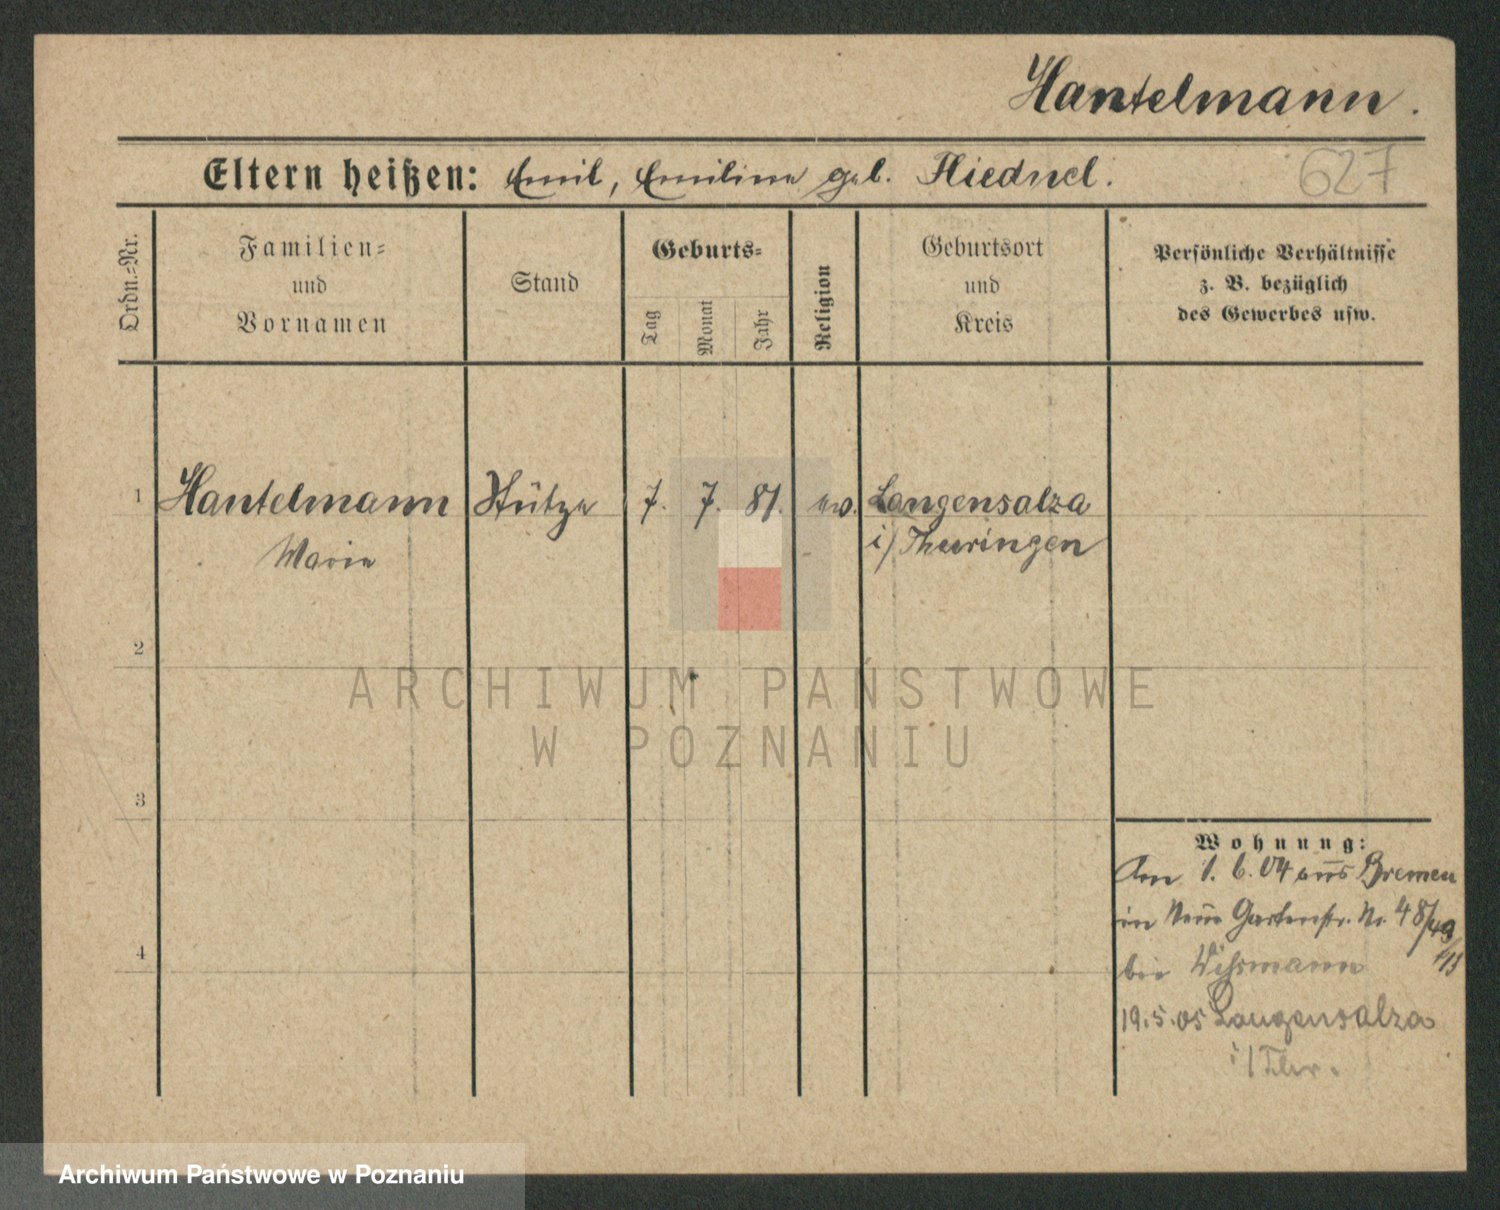 Hantelmann.
Eltern heißen: Emil, Emiline geb. Fliednel.
627
Ordn.-Nr.
Familien-
und
Vornamen
Stand
Geburts-
Tag
Monat
Jahr
Religion
Geburtsort
und
Kreis
Persönliche Verhältnisse
z. B. bezüglich
des Gewerbes usw.
1
Hantelmann
Marie
Stütze
7.
7.
81.
ev.
Langensalza
i/Thueringen
2
ARCHIWUM PAŃSTWOWE
W POZNANIU
3
Wohnung:
Am 1. 6. 04 aus Bremen
in Neue Gartenstr. Nr. 48/49
4
bei
19.5.05 Langensalza
i/Thür.
Archiwum Państwowe w Poznaniu